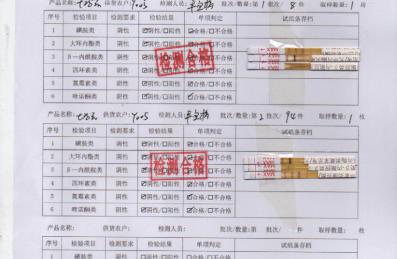 产品名称: 供货农户: Y005 检测人员: 批次/数量:第 1 批次/ 8 件 取样数量: 1 枚
序号 检验项目 检测要求 检验结果 单项判定 试纸条存档
1 磺胺类 阴性 ☑阴性/□阳性 ☑合格/□不合格
2 大环内酯类 阴性 ☑阴性/□阳性 ☑合格/□不合格
3 β-内酰胺类 阴性 ☑阴性/□阳性 ☑合格/□不合格
4 四环素类 阴性 ☑阴性/□阳性 ☑合格/□不合格
5 氯霉素类 阴性 ☑阴性/□阳性 ☑合格/□不合格
6 喹诺酮类 阴性 ☑阴性/□阳性 ☑合格/□不合格
检测合格
产品名称: 供货农户: Y005 检测人员: 批次/数量:第 2 批次/ 94 件 取样数量: 1 枚
序号 检验项目 检测要求 检验结果 单项判定 试纸条存档
1 磺胺类 阴性 ☑阴性/□阳性 ☑合格/□不合格
2 大环内酯类 阴性 ☑阴性/□阳性 ☑合格/□不合格
3 β-内酰胺类 阴性 ☑阴性/□阳性 ☑合格/□不合格
4 四环素类 阴性 ☑阴性/□阳性 ☑合格/□不合格
5 氯霉素类 阴性 ☑阴性/□阳性 ☑合格/□不合格
6 喹诺酮类 阴性 ☑阴性/□阳性 ☑合格/□不合格
检测合格
产品名称: 供货农户: 检测人员: 批次/数量:第 批次/ 件 取样数量: 枚
序号 检验项目 检测要求 检验结果 单项判定 试纸条存档
1 磺胺类 阴性 □阴性/□阳性 □合格/□不合格